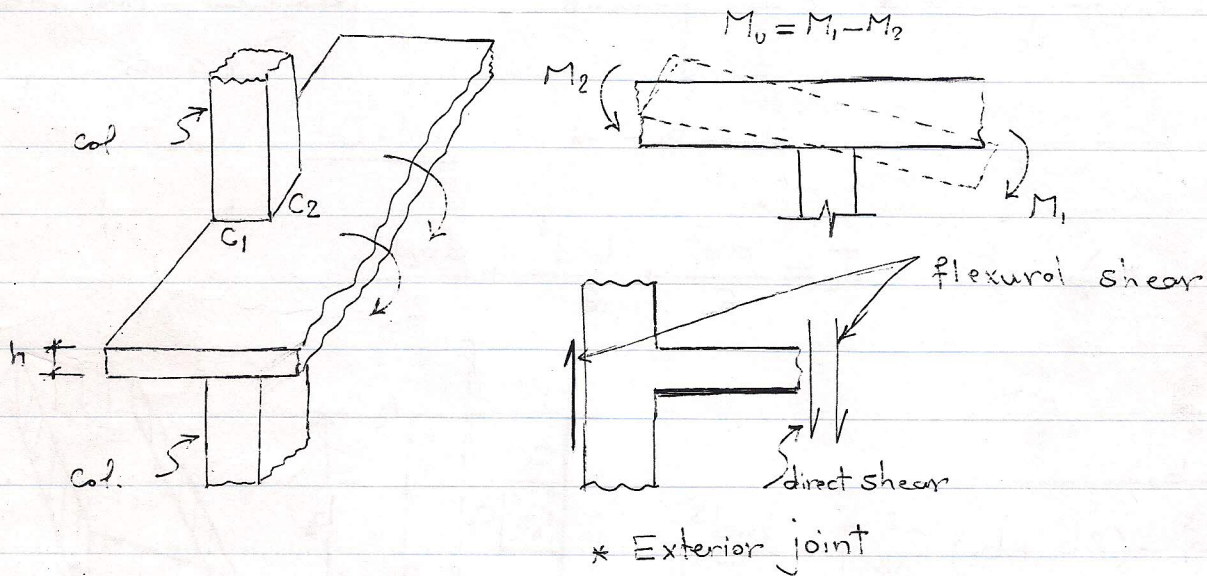 M_u = M_1 - M_2
M_2
M_1
col
C_2
C_1
h
col.
flexural shear
direct shear
* Exterior joint